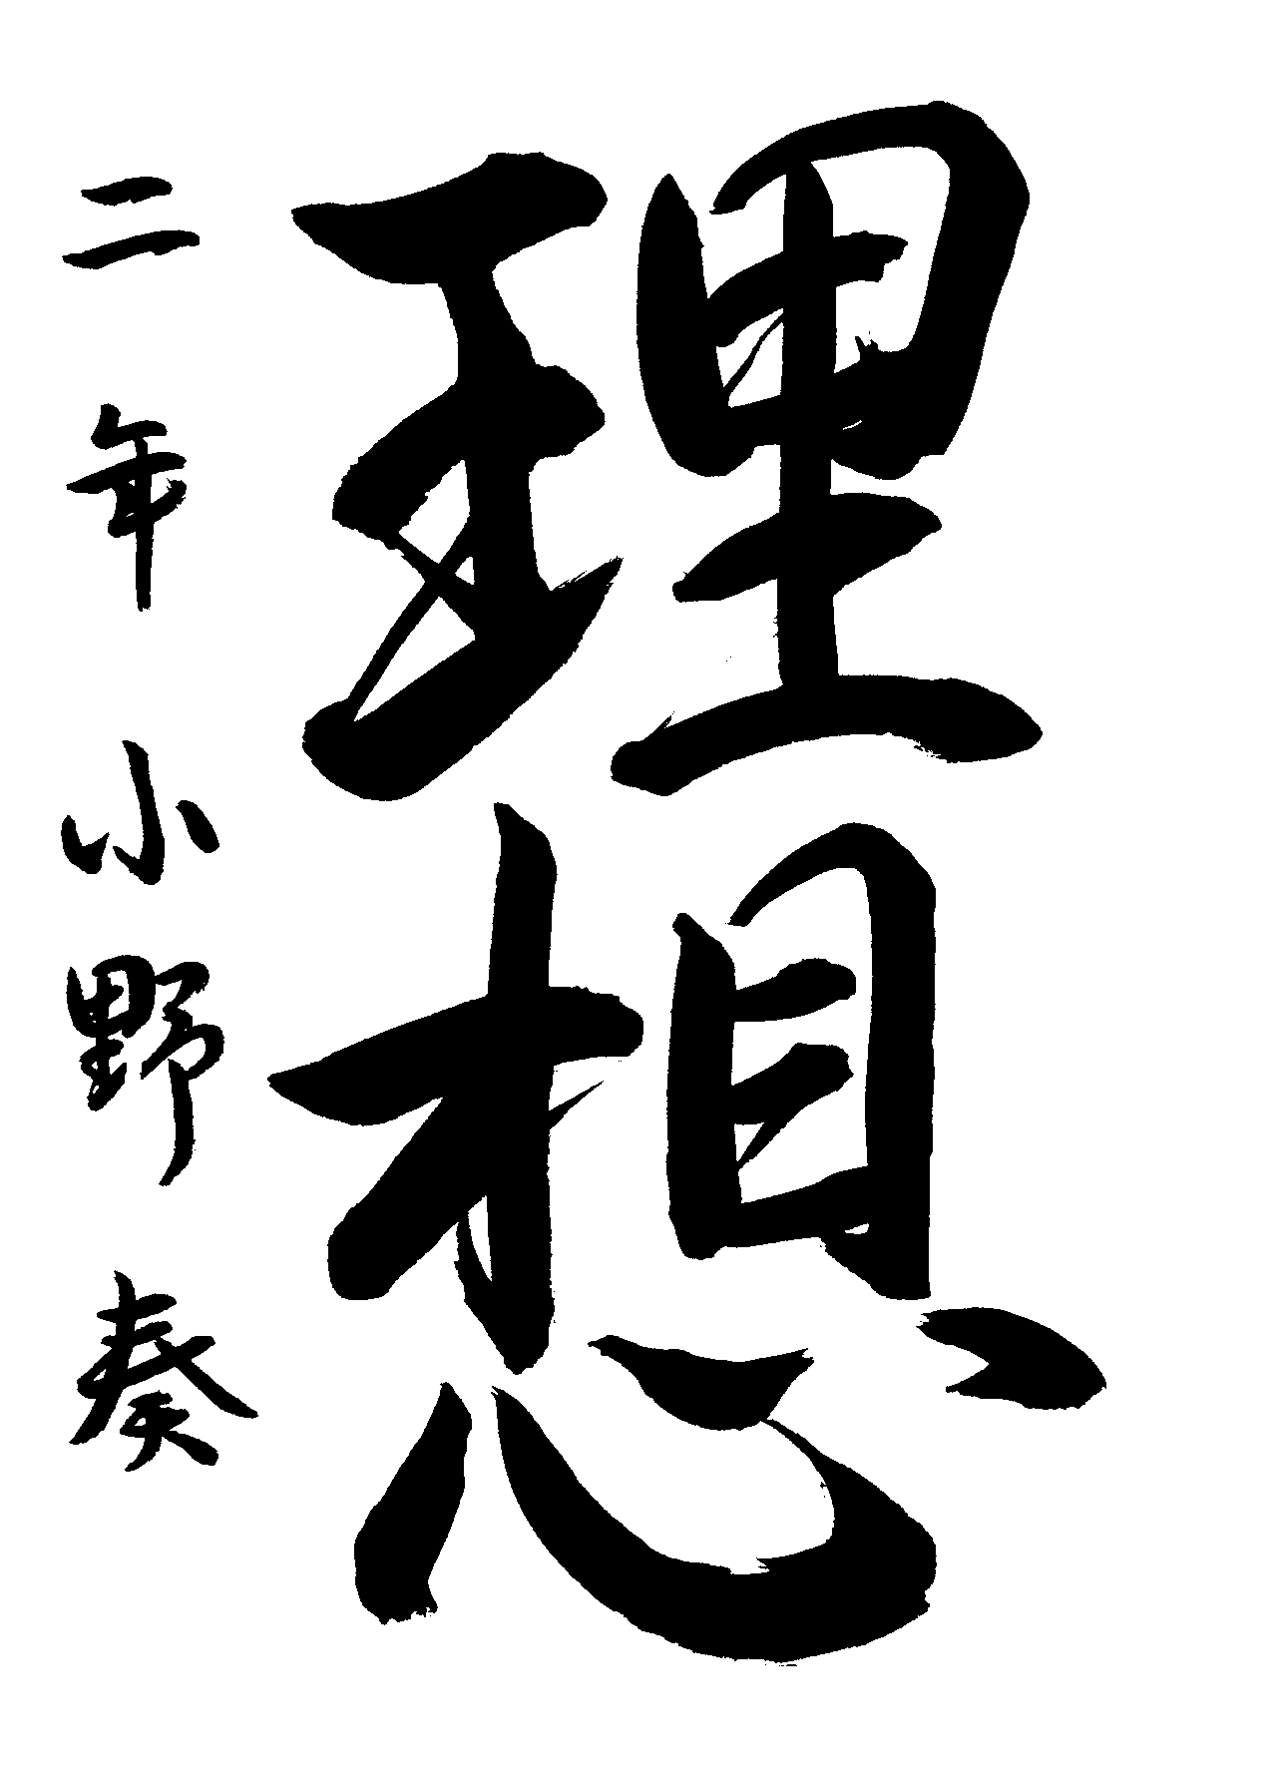 理想
二年 小野奏